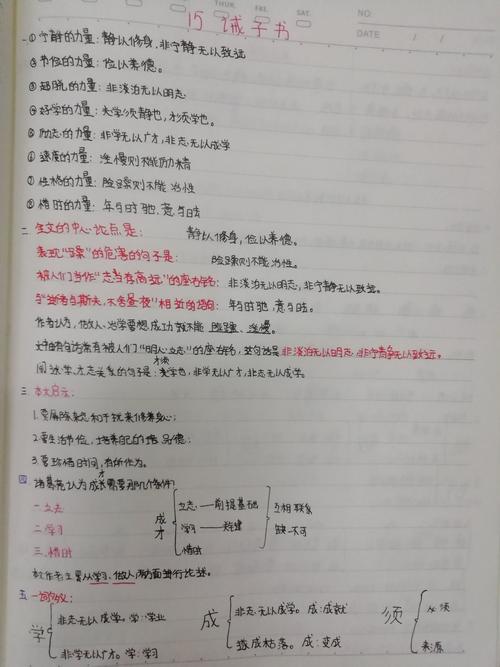 THUR. FRI. SAT. NO:
DATE / /
15 诫子书
一.① 宁静的力量：静以修身，非宁静无以致远
② 节俭的力量：俭以养德。
③ 超脱的力量：非淡泊无以明志
④ 好学的力量：夫学须静也，才须学也。
⑤ 励志的力量：非学无以广才，非志无以成学
⑥ 速度的力量：淫慢则不能励精
⑦ 性格的力量：险躁则不能治性
⑧ 惜时的力量：年与时驰，意与日去
二 全文的中心论点是： 静以修身，俭以养德。
表现“躁”的危害的句子是： 险躁则不能治性。
被人们当作“志当存高远”的座右铭：非淡泊无以明志，非宁静无以致远。
与“逝者如斯夫，不舍昼夜”相近的句：年与时驰，意与日去。
作者认为，做人、治学要想成功就不能 险躁、淫慢。
文中有句话常被人们“明心立志”的座右铭，这句话是 非淡泊无以明志，非宁静无以致远。
阐述学、才、志关系的句子是：才须学也，非学无以广才，非志无以成学。
三 本文启示：
1.要屏除杂念和干扰来修养身心；
2.要生活节俭，培养自己的品德；
3.要珍惜时间，有所作为。
四 诸葛亮认为成才需要哪几个条件?
一.立志
二.学习
三.惜时
成才
立志——前提基础
学习——关键
惜时
互相联系
缺一不可
本文作者主要从学习、做人两方面进行论述。
五 一词多义：
学
非志无以成学。学：学业
非学无以广才。学：学习
成
非志无以成学。成：成就
遂成枯落。成：变成
须
必须